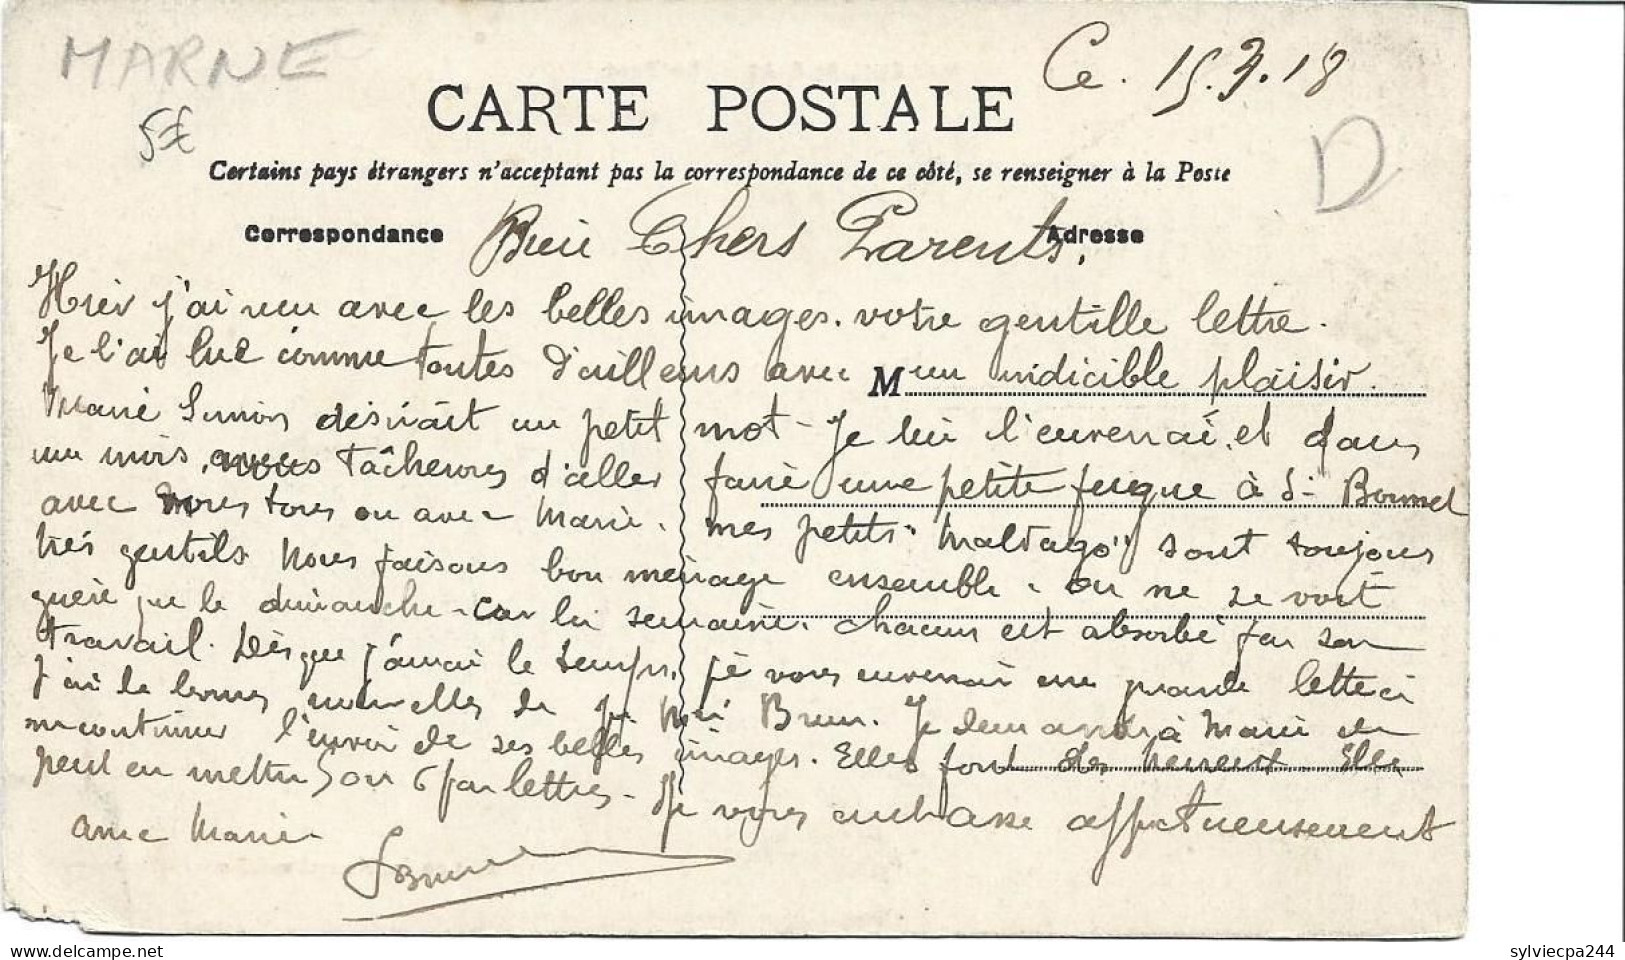 MARNE
5€
Ce. 15.3.18
CARTE POSTALE
D
Certains pays étrangers n'acceptant pas la correspondance de ce côté, se renseigner à la Poste
Correspondance
Adresse
Bien Chers Parents.
Hier j'ai reçu avec les belles images. votre gentille lettre.
Je l'ai lue comme toutes d'ailleurs avec M un indicible plaisir.
Marie désirait un petit mot - Je lui l'enverrai. et dans
un mois, nous tâcherons d'aller faire une petite fugue à St Bonnet
avec nores tous ou avec Marie. mes petits "Maldago" sont toujours
très gentils. Nous faisons bon ménage ensemble. on ne se voit
guère que le dimanche - car la semaine. chacun est absorbé par son
travail. Dès que j'aurai le temps, je vous enverrai une grande lettre
J'ai de bonnes nouvelles de Brun. Je demanderai à Marie de
continuer l'envoi de ses belles images. Elles font des heureux. Elle
peut en mettre 5 ou 6 par lettres - Je vous embrasse affectueusement
avec Marie
sylviecpa244